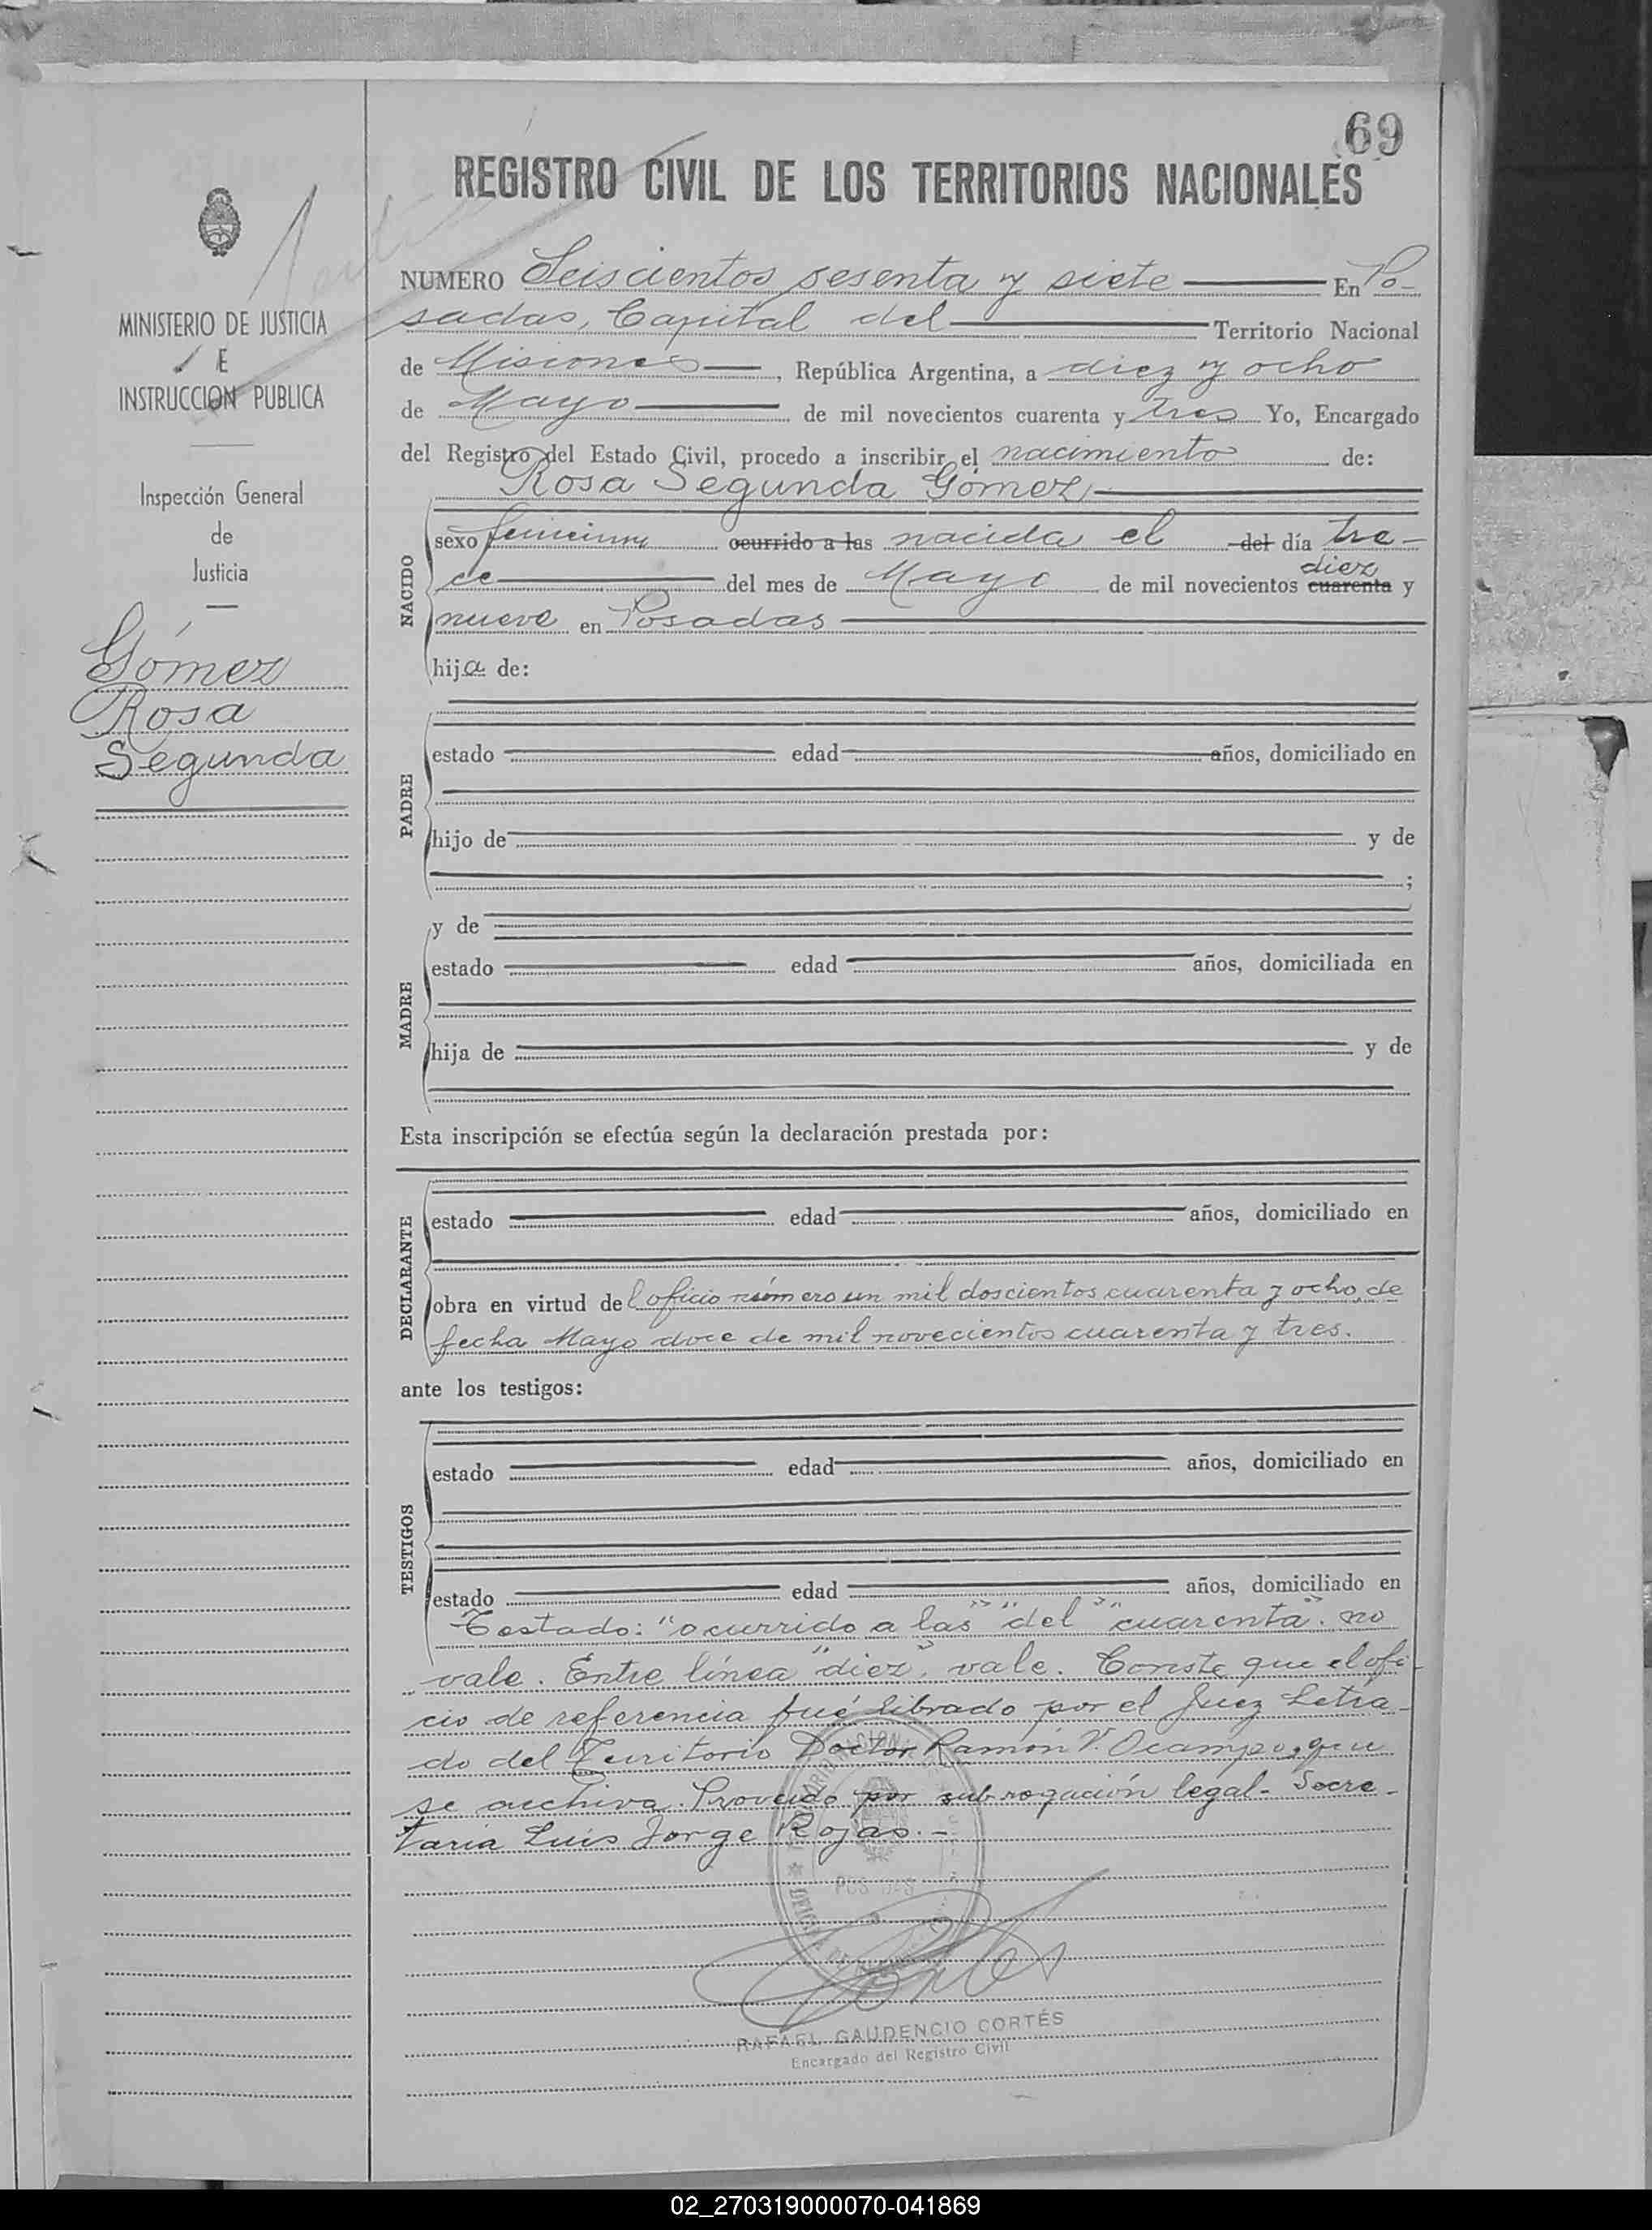 69
REGISTRO CIVIL DE LOS TERRITORIOS NACIONALES
MINISTERIO DE JUSTICIA
E
INSTRUCCION PUBLICA
Inspección General
de
Justicia
Gómez
Rosa
Segunda
NUMERO Seiscientos sesenta y siete En Po-
sadas, Capital del Territorio Nacional
de Misiones, República Argentina, a diez y ocho
de Mayo de mil novecientos cuarenta y tres Yo, Encargado
del Registro del Estado Civil, procedo a inscribir el nacimiento de:
Rosa Segunda Gómez
NACIDO
sexo femenino ocurrido a las nacida el del día tre-
ce del mes de Mayo de mil novecientos cuarenta diez y
nueve en Posadas
hija de:
PADRE
estado edad años, domiciliado en
hijo de y de
;
MADRE
y de
estado edad años, domiciliada en
hija de y de
Esta inscripción se efectúa según la declaración prestada por:
DECLARANTE
estado edad años, domiciliado en
obra en virtud del oficio número un mil doscientos cuarenta y ocho, de
fecha Mayo doce de mil novecientos cuarenta y tres.
ante los testigos:
TESTIGOS
estado edad años, domiciliado en
estado edad años, domiciliado en
Testado: "ocurrido a las" "del" "cuarenta". no
vale. Entre línea "diez", vale. Conste que el ofi-
cio de referencia fué librado por el Juez Letra-
do del Territorio Doctor Ramón V. Ocampo, que
se archiva. Proveído por subrogación legal- Secre-
taria Luis Jorge Rojas.-
RAFAEL GAUDENCIO CORTÉS
Encargado del Registro Civil
02_270319000070-041869